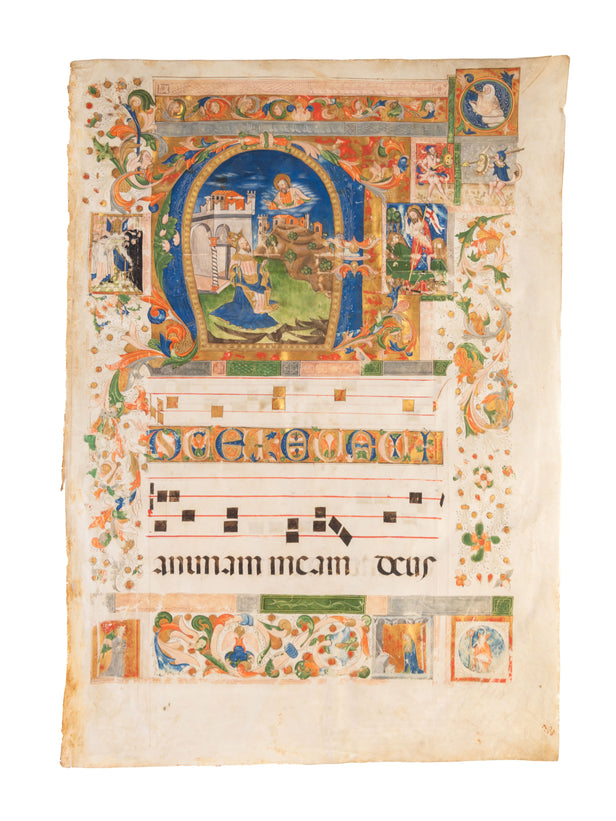 A
D TE LEVAVI
animam meam deus